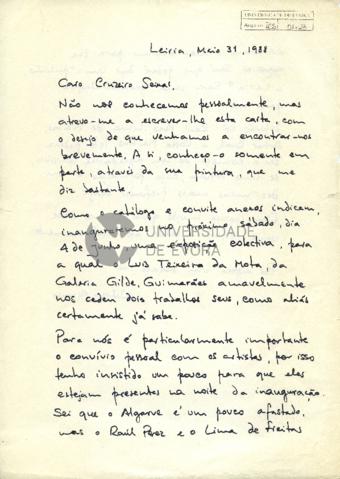 UNIVERSIDADE DE ÉVORA
Leiria, Maio 31, 1988
Caro Cruzeiro Seixas.
Não nos conhecemos pessoalmente, mas
atrevo-me a escrever-lhe esta carta, com
o desejo de que venhamos a encontrar-nos
brevemente. A si, conheço-o somente em
parte, através da sua pintura, que me
diz bastante.
Como o catálogo e convite anexos indicam,
inauguraremos no próximo sábado, dia
4 de junho uma exposição colectiva, para
a qual o Luis Teixeira da Mota, da
Galeria Gilde, Guimarães amavelmente
nos cedeu dois trabalhos seus, como aliás
certamente já sabe.
Para nós é particularmente importante
o convívio pessoal com os artistas, por isso
tenho insistido um pouco para que eles
estejam presentes na noite da inauguração.
Sei que o Algarve é um pouco afastado,
mas o Raúl Perez e o Lima de Freitas